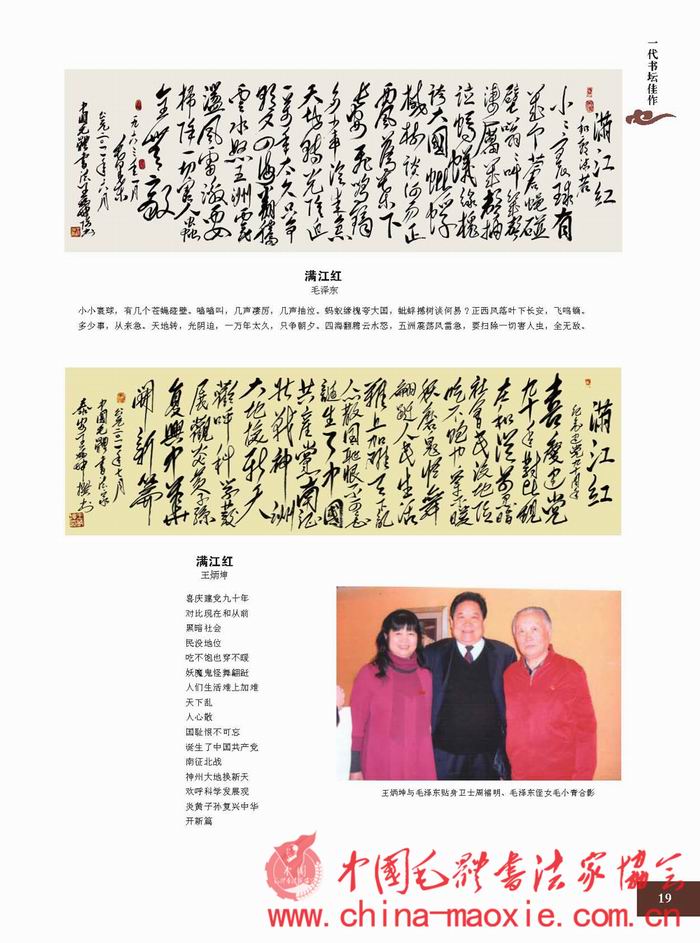 一代书坛佳作
满江红
和郭沫若
小小寰球有
几个苍蝇碰
壁嗡嗡叫几声
凄厉几声抽
泣蚂蚁缘槐
夸大国蚍蜉
撼树谈何易正
西风落叶下
长安飞鸣镝
多少事从来急
天地转光阴迫
一万年太久只争
朝夕四海翻腾
云水怒五洲震
荡风雷激要
扫除一切害人虫
全无敌
一九六三年一月
满江红
毛泽东
小小寰球，有几个苍蝇碰壁。嗡嗡叫，几声凄厉，几声抽泣。蚂蚁缘槐夸大国，蚍蜉撼树谈何易？正西风落叶下长安，飞鸣镝。
多少事，从来急。天地转，光阴迫，一万年太久，只争朝夕。四海翻腾云水怒，五洲震荡风雷急，要扫除一切害人虫，全无敌。
满江红
纪念建党九十周年
喜庆建党
九十年对比现
在和从前黑暗
社会民没地位
吃不饱也穿不暖
妖魔鬼怪舞
翩跹人民生活
难上加难天下乱
人心散国耻恨不可忘
诞生了中国
共产党南征
北战神州
大地换新天
欢呼科学发
展观炎黄子孙
复兴中华
开新篇
公元二〇一一年七月
满江红
王炳坤
喜庆建党九十年
对比现在和从前
黑暗社会
民没地位
吃不饱也穿不暖
妖魔鬼怪舞翩跹
人们生活难上加难
天下乱
人心散
国耻恨不可忘
诞生了中国共产党
南征北战
神州大地换新天
欢呼科学发展观
炎黄子孙复兴中华
开新篇
王炳坤与毛泽东贴身卫士周福明、毛泽东侄女毛小青合影
中國毛體書法家協会
www.china-maoxie.com.cn
19